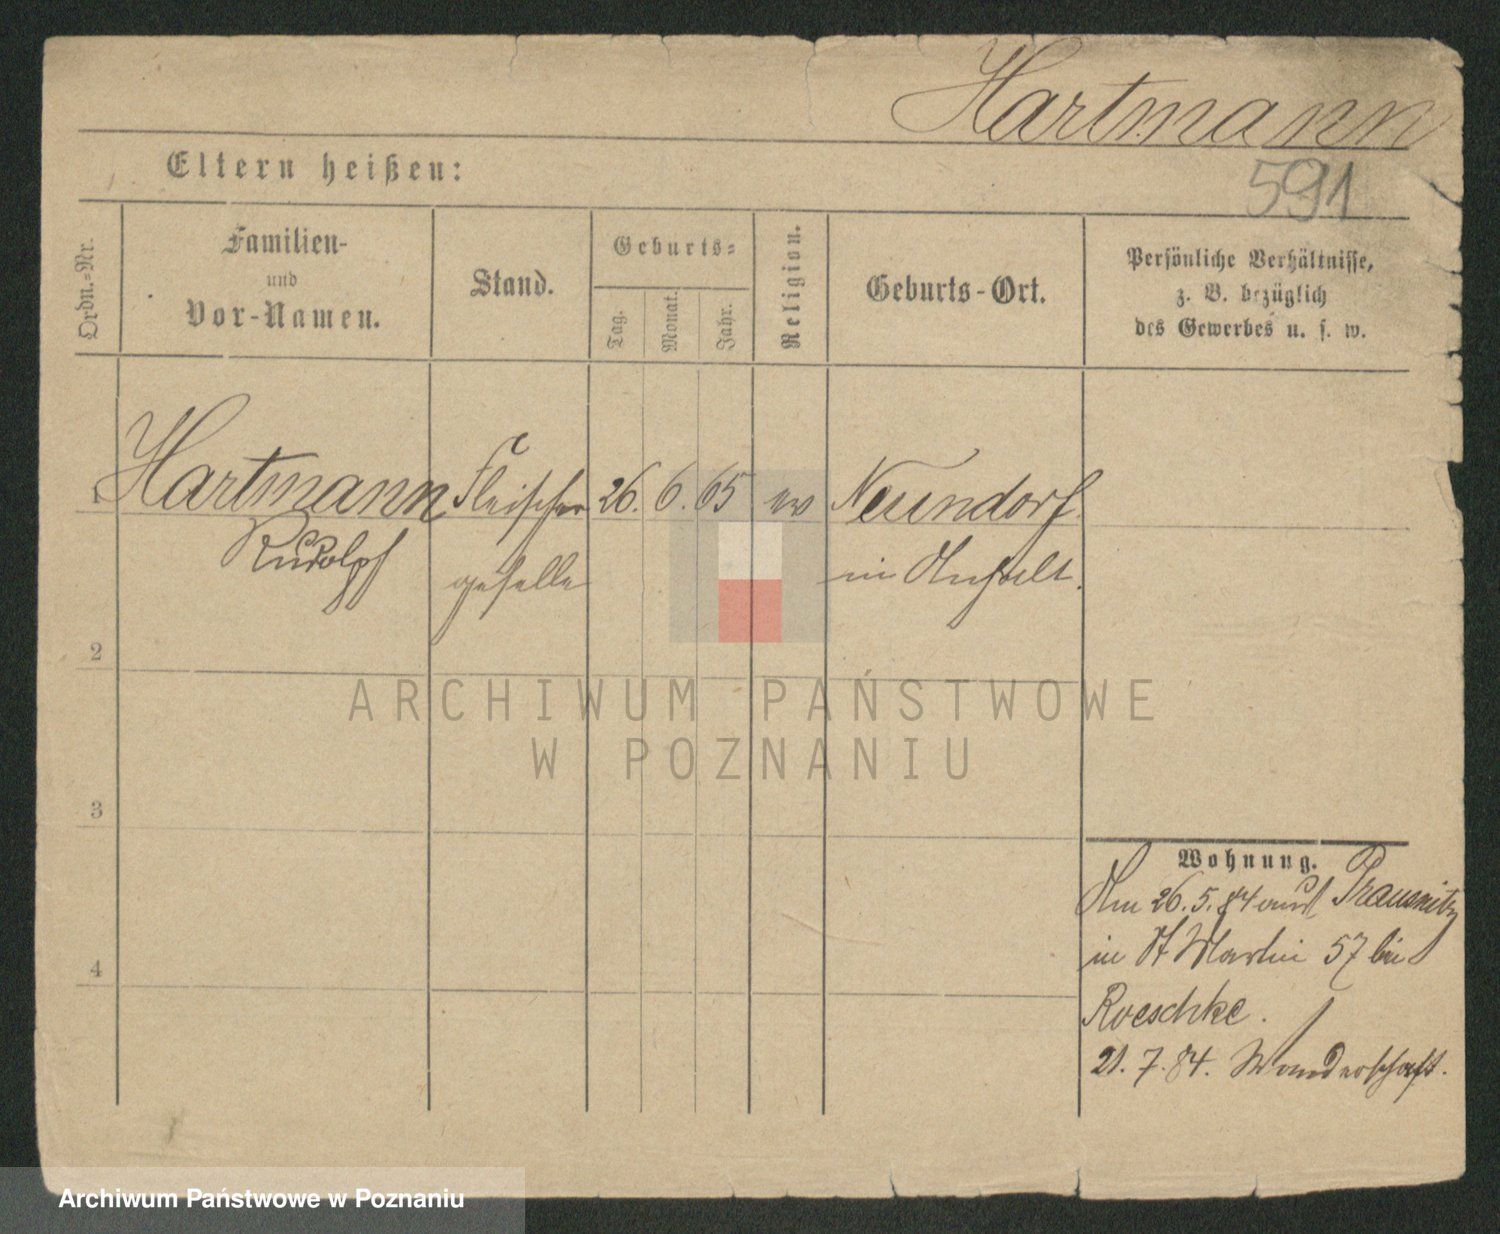 Hartmann
591
Eltern heißen:
Ordn.-Nr.
Familien-
und
Vor-Namen.
Stand.
Geburts-
Tag.
Monat.
Jahr.
Religion.
Geburts-Ort.
Persönliche Verhältnisse,
z. B. bezüglich
des Gewerbes u. s. w.
1 Hartmann Fleischer 26. 6. 65 ev Neundorf
Rudolph geselle in Anhalt.
2
3
4
ARCHIWUM PAŃSTWOWE
W POZNANIU
Wohnung.
Am 26. 5. 84 aus Prausnitz
in St Martin 57 bei
Roeschke.
21. 7. 84. Wanderschaft.
Archiwum Państwowe w Poznaniu